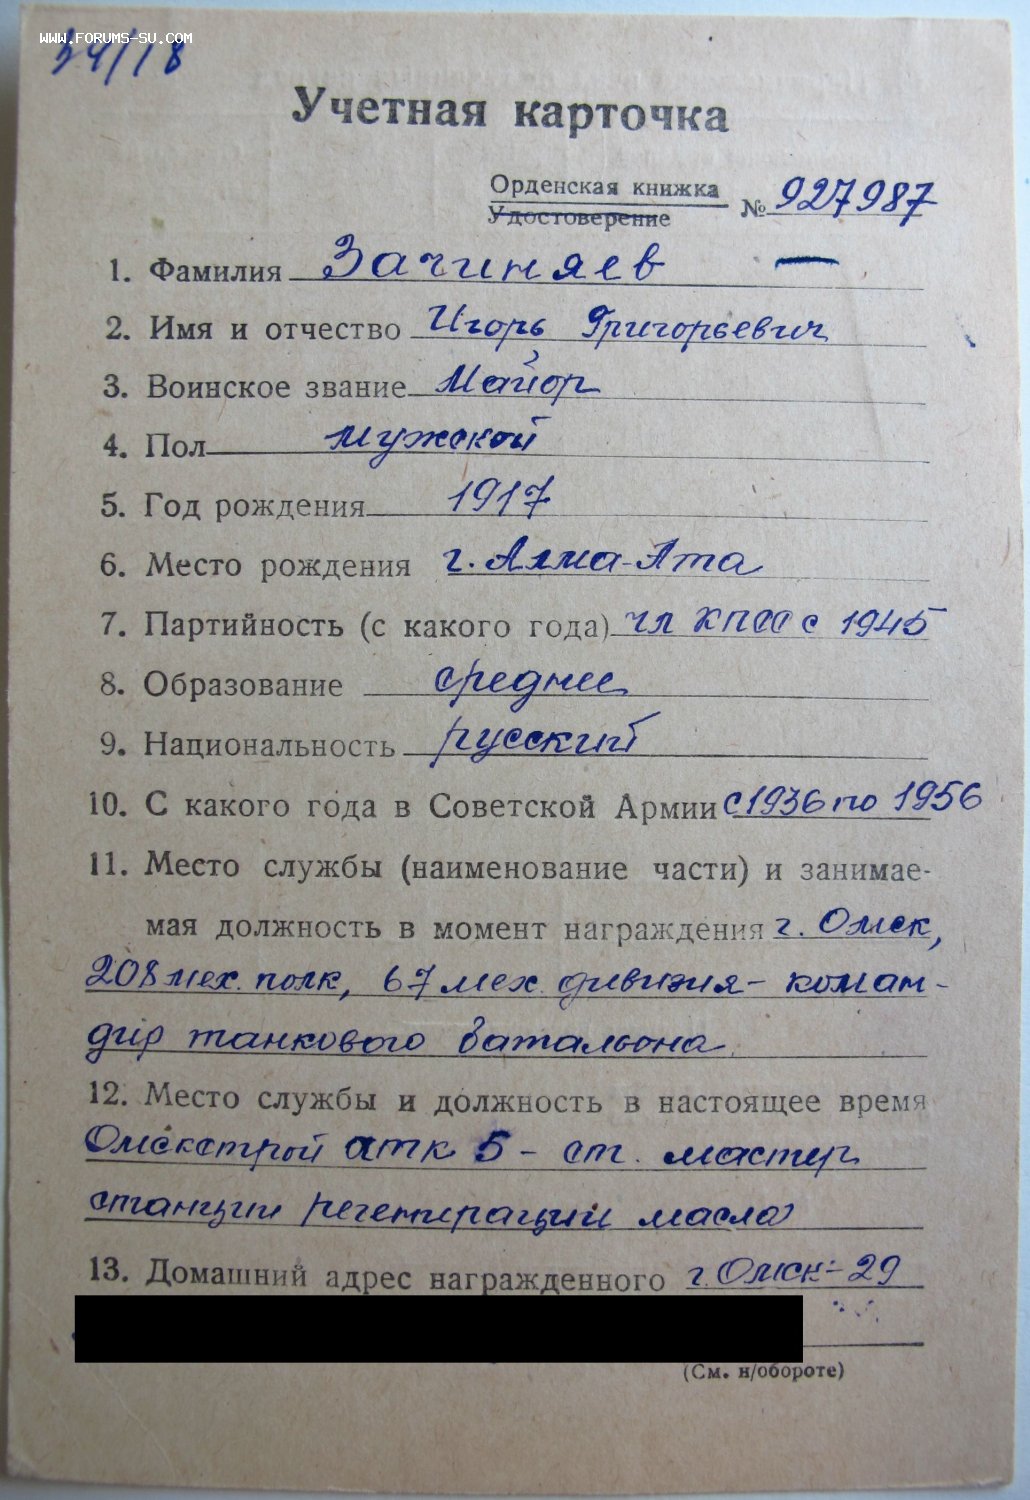 www.forums-su.com
34/18
Учетная карточка
Орденская книжка
Удостоверение № 927987
1. Фамилия Зачиняев
2. Имя и отчество Игорь Григорьевич
3. Воинское звание Майор
4. Пол мужской
5. Год рождения 1917
6. Место рождения г. Алма-Ата
7. Партийность (с какого года) чл КПСС с 1945
8. Образование среднее
9. Национальность русский
10. С какого года в Советской Армии с 1936 по 1956
11. Место службы (наименование части) и занимае-
мая должность в момент награждения г. Омск,
208 мех. полк, 67 мех. дивизия - коман-
дир танкового батальона
12. Место службы и должность в настоящее время
Омскстрой АТК 5 - ст. мастер
станции регенерации масла
13. Домашний адрес награжденного г. Омск-29
(См. н/обороте)